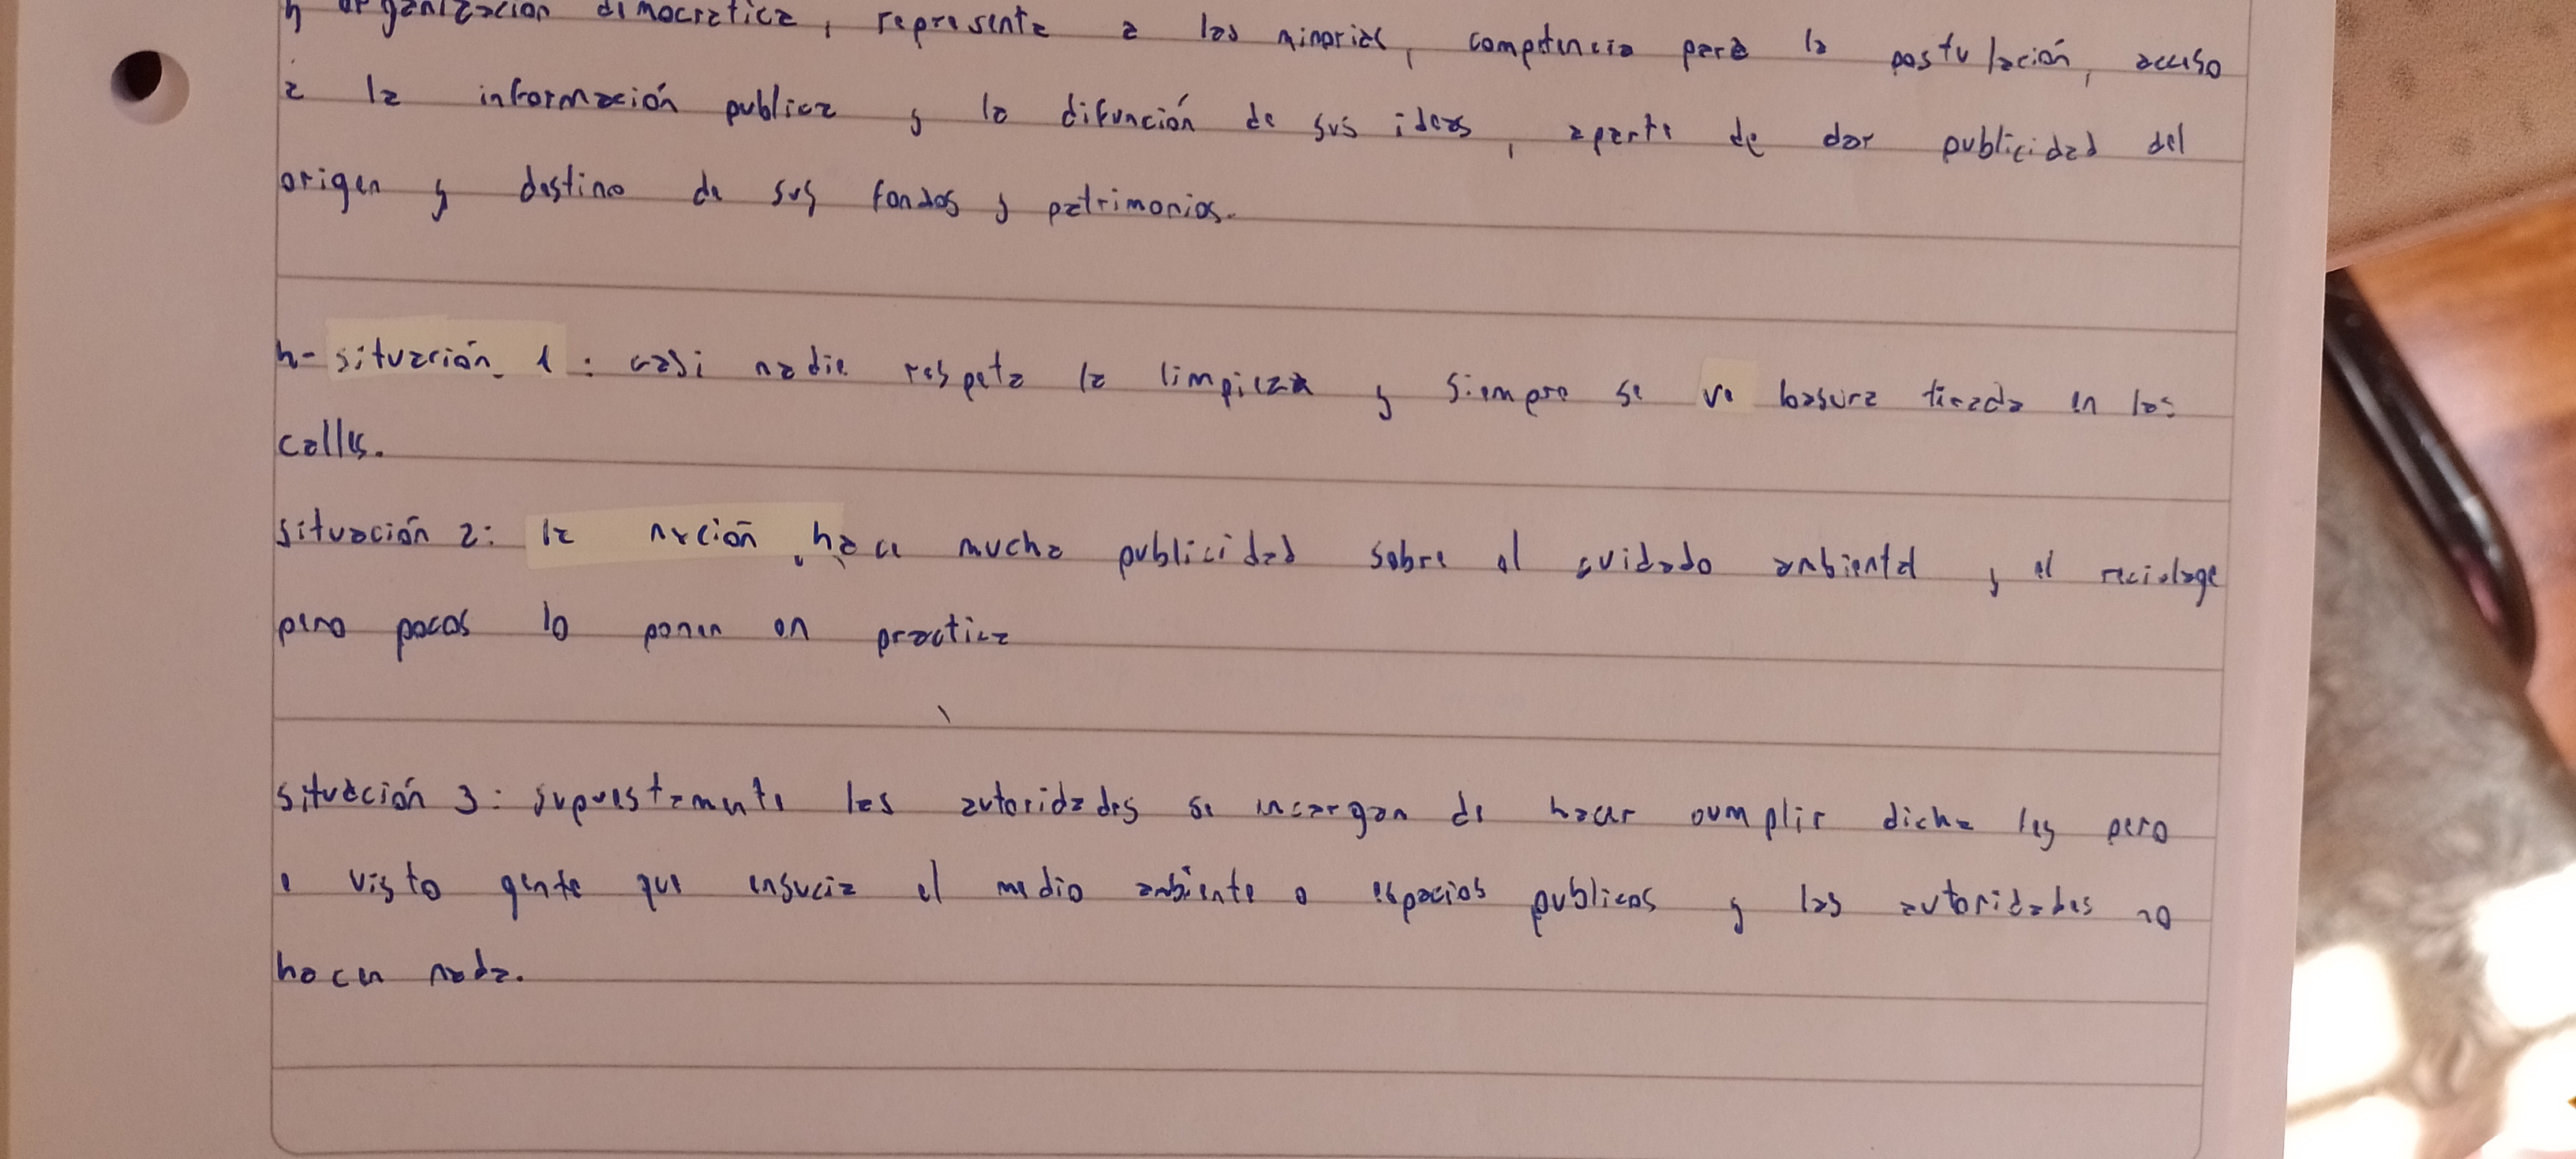 y organización democratica, representa a las minorias, competencia para la postulación, acceso
a la información publica y la difunción de sus ideas, aparte de dar publicidad del
origen y destino de sus fondos y patrimonios.
h- situación 1: casi nadie respeta la limpieza y siempre se ve basura tirada en las
calles.
situación 2: la nación hace mucha publicidad sobre el cuidado ambiental y el reciclage
pero pocos lo ponen en practica
situación 3: supuestamente las autoridades se encargan de hacer cumplir dicha ley pero
e visto gente que ensucia el medio ambiente o espacios publicos y las autoridades no
hacen nada.